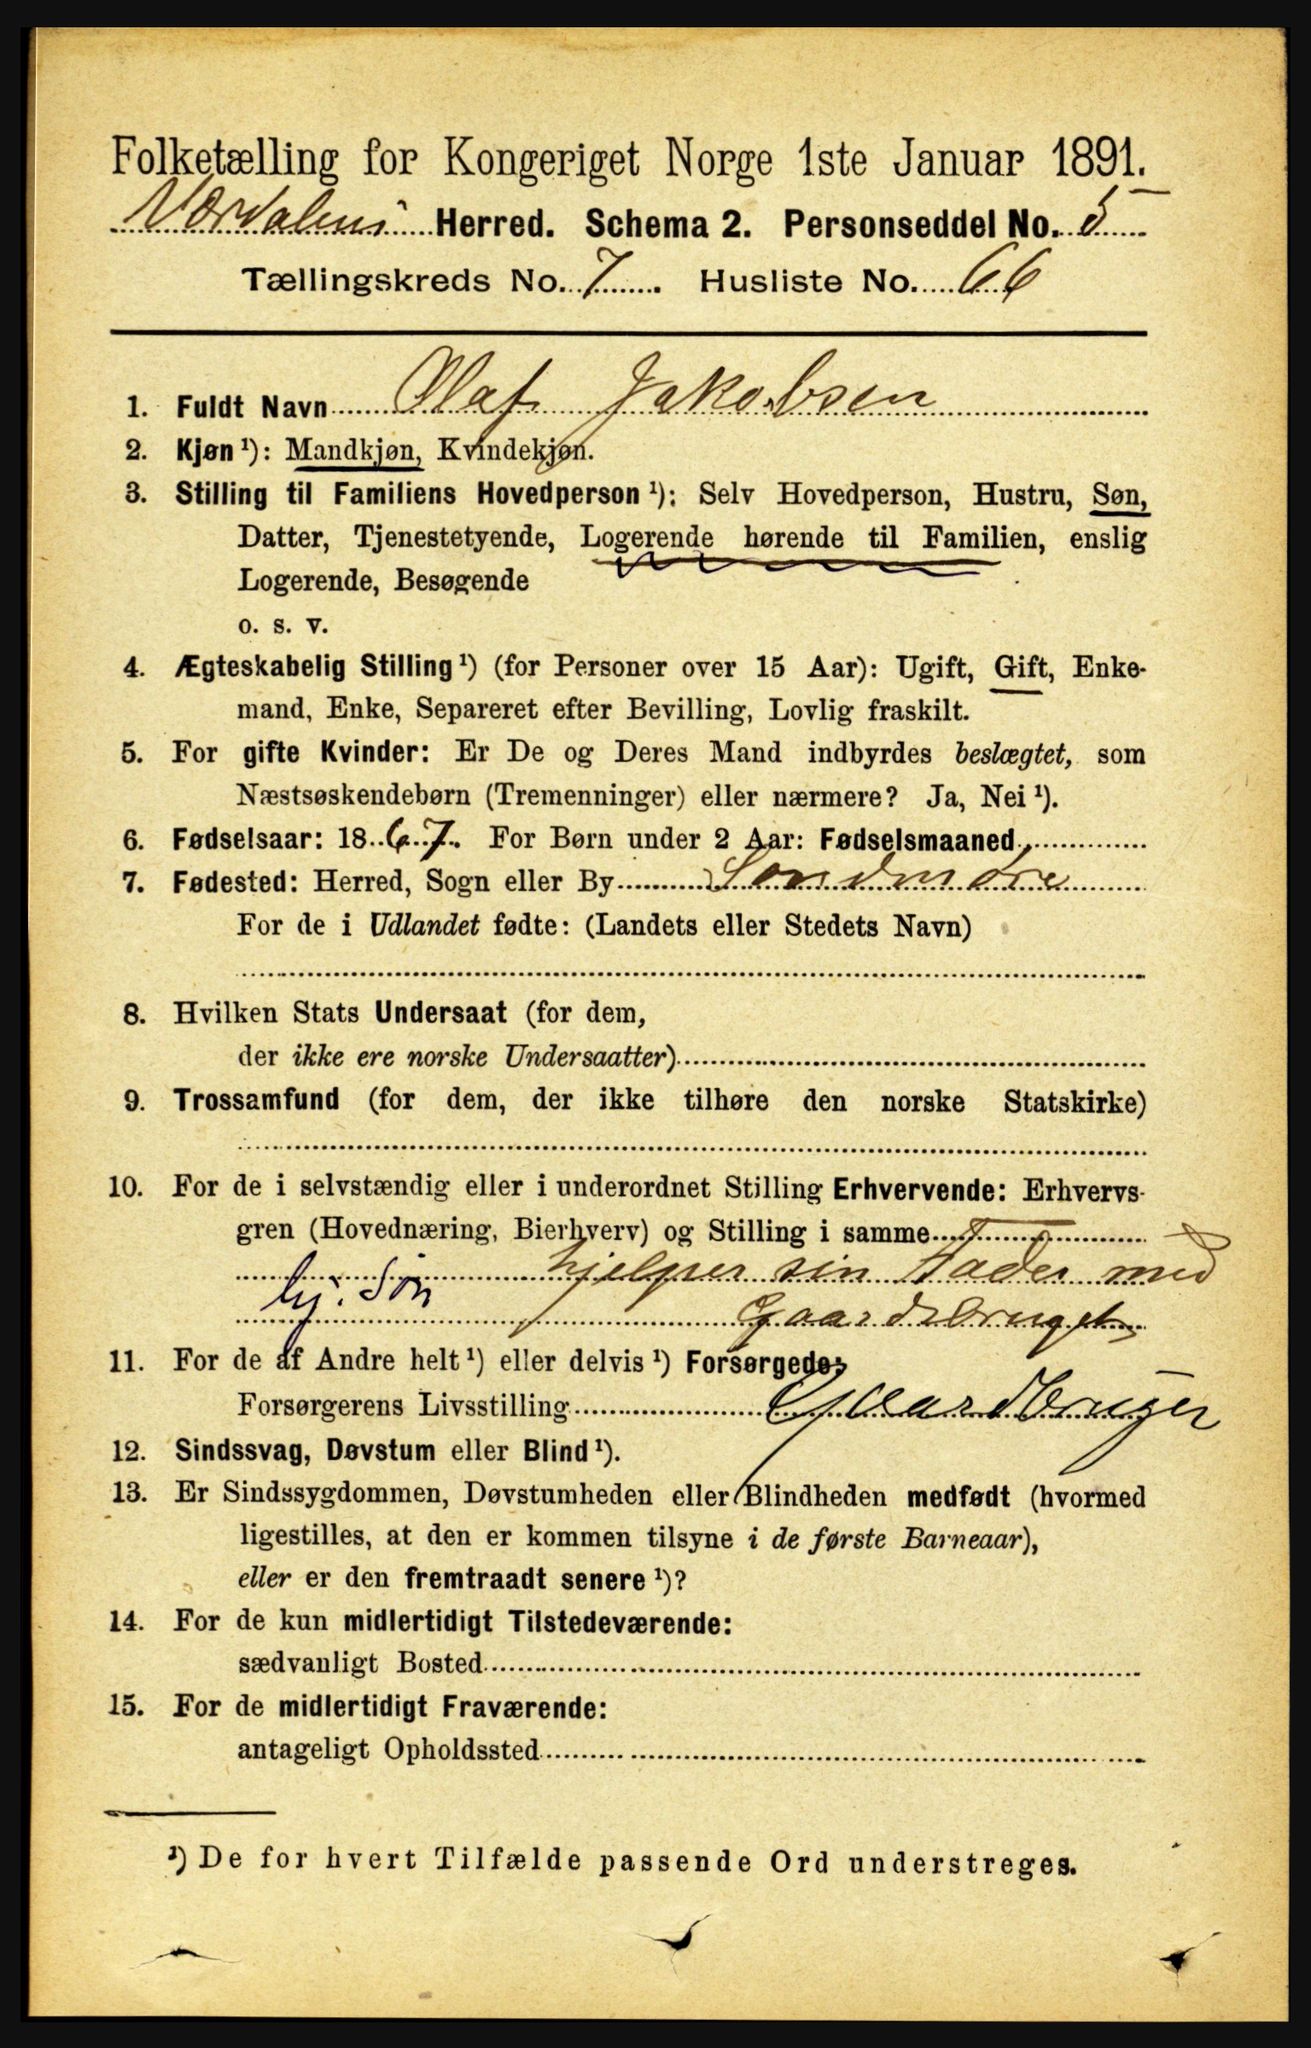 Folketælling for Kongeriget Norge 1ste Januar 1891.
Værdalens Herred. Schema 2. Personseddel No. 5
Tællingskreds No. 7. Husliste No. 66
1. Fuldt Navn Olaf Jakobsen
2. Kjøn ¹): Mandkjøn, Kvindekjøn.
3. Stilling til Familiens Hovedperson ¹): Selv Hovedperson, Hustru, Søn,
Datter, Tjenestetyende, Logerende hørende til Familien, enslig
Logerende, Besøgende
o. s. v.
4. Ægteskabelig Stilling ¹) (for Personer over 15 Aar): Ugift, Gift, Enke-
mand, Enke, Separeret efter Bevilling, Lovlig fraskilt.
5. For gifte Kvinder: Er De og Deres Mand indbyrdes beslægtet, som
Næstsøskendebørn (Tremenninger) eller nærmere? Ja, Nei ¹).
6. Fødselsaar: 1867. For Børn under 2 Aar: Fødselsmaaned
7. Fødested: Herred, Sogn eller By Søndmøre
For de i Udlandet fødte: (Landets eller Stedets Navn)
8. Hvilken Stats Undersaat (for dem,
der ikke ere norske Undersaatter)
9. Trossamfund (for dem, der ikke tilhøre den norske Statskirke)
10. For de i selvstændig eller i underordnet Stilling Erhvervende: Erhvervs-
gren (Hovednæring, Bierhverv) og Stilling i samme
hjelper sin Fader med
hj. Søn Gaardsbruget
11. For de af Andre helt ¹) eller delvis ¹) Forsørgede:
Forsørgerens Livsstilling Gaardbruger
12. Sindssvag, Døvstum eller Blind ¹).
13. Er Sindssygdommen, Døvstumheden eller Blindheden medfødt (hvormed
ligestilles, at den er kommen tilsyne i de første Barneaar),
eller er den fremtraadt senere ¹)?
14. For de kun midlertidigt Tilstedeværende:
sædvanligt Bosted
15. For de midlertidigt Fraværende:
antageligt Opholdssted
¹) De for hvert Tilfælde passende Ord understreges.